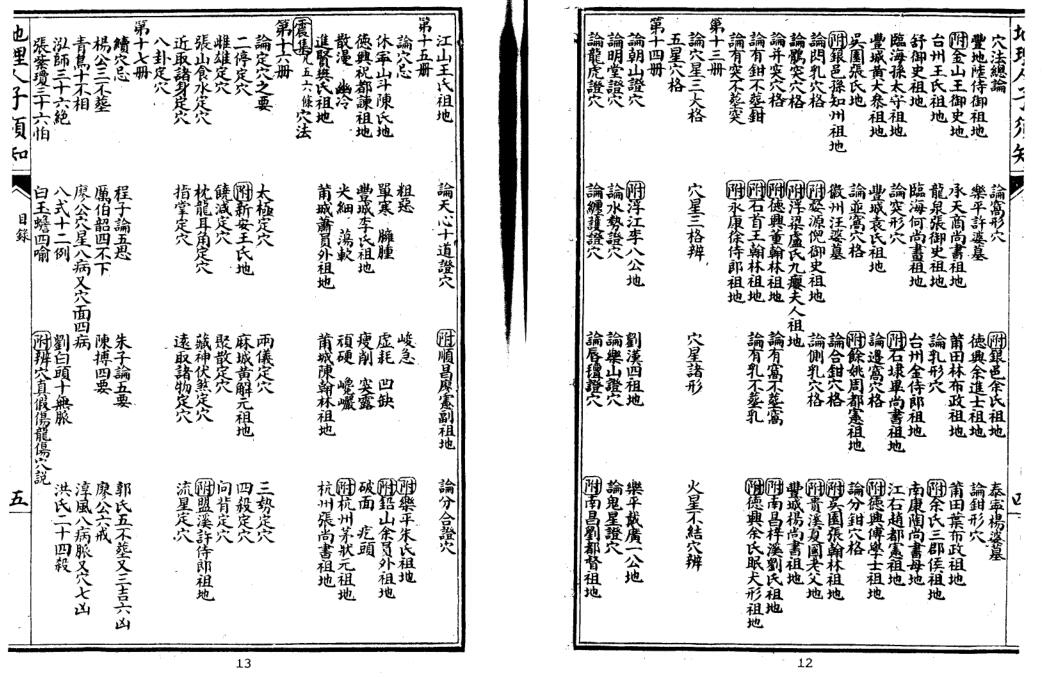 地理人子須知
四
穴法總論　論窩形穴　附銀邑余氏祖地　泰寧楊婆墓
豐地陸侍御祖地　樂平許婆墓　德興余進士祖地　論鉗形穴
附金山王御史地　承天商尚書祖地　莆田林布政祖地　莆田葉布政祖地
台州王氏祖地　龍泉張御史祖地　論乳形穴　附余氏三郡侯祖地
舒御史祖地　臨海何尚書祖地　台州金侍郎祖地　南康陶尚書母地
臨海孫太守祖地　論突形穴　附石埭畢尚書祖地　江石趙都憲祖地
豐城黃大參祖地　豐城袁氏祖地　論邊窩穴格　附德興傅學士祖地
吳園張氏地　論並窩穴格　附餘姚周都憲祖地　論分鉗穴格
附銀邑孫知州祖地　徽州汪婆墓　論合鉗穴格　附吳園張翰林祖地
論閃乳穴格　附婺源倪御史祖地　論側乳穴格　附貴溪夏國老父地
論鶻突穴格　附浮梁盧氏九癭夫人祖地　豐城楊尚書祖地
論并突穴格　附德興董翰林祖地　論有窩不葬窩　附南昌梓溪劉氏祖地
論有鉗不葬鉗　附石首王翰林祖地　論有乳不葬乳　附德興余氏眠犬形祖地
論有突不葬突　附永康徐侍郎祖地
第十三冊
論穴星三大格　穴星三格辨　穴星諸形　火星不結穴辨
五星穴格
第十四冊
論朝山證穴　附浮江李八公地　劉漢四祖地　樂平戴廣一公地
論明堂證穴　論水勢證穴　論樂山證穴　論鬼星證穴
論龍虎證穴　論纏護證穴　論唇氈證穴　附南昌劉都督祖地
12
江山王氏祖地　論天心十道證穴　附順昌廖憲副祖地　論分合證穴
第十五冊
論穴忌　粗惡　峻急　附樂平朱氏祖地
休寧山斗陳氏地　單寒　臃腫　虛耗　凹缺　附鉛山余員外祖地
德興祝都諫祖地　豐城李氏祖地　瘦削　突露　破面　疙頭
散漫　幽冷　尖細　蕩軟　頑硬　巉巖　附杭州茅狀元祖地
進賢樊氏祖地　莆城蕭員外祖地　莆城陳翰林祖地　杭州張尚書祖地
震集凡五六條穴法
第十六冊
論定穴之要　太極定穴　兩儀定穴　三勢定穴
二停定穴　附新安王氏地　麻城黃解元祖地　四殺定穴
雌雄定穴　饒減定穴　聚散定穴　向背定穴
張山食水定穴　枕龍耳角定穴　藏神伏煞定穴　附盟溪許侍郎祖地
近取諸身定穴　指掌定穴　遠取諸物定穴　流星定穴
八卦定穴
第十七冊
續穴忌　程子論五患　朱子論五要　郭氏五不葬又三吉六凶
楊公三不葬　厲伯韶四不下　陳摶四要　廖公六戒
青烏十不相　廖公穴星八病又穴面四病　淳風八病脈又穴七凶
泓師三十六絕　八式十二例　劉白頭十無脈　洪氏二十四殺
張紫瓊三十六怕　白玉蟾四喻　附辨穴真假傷龍傷穴説
地理人子須知
目錄
五
13